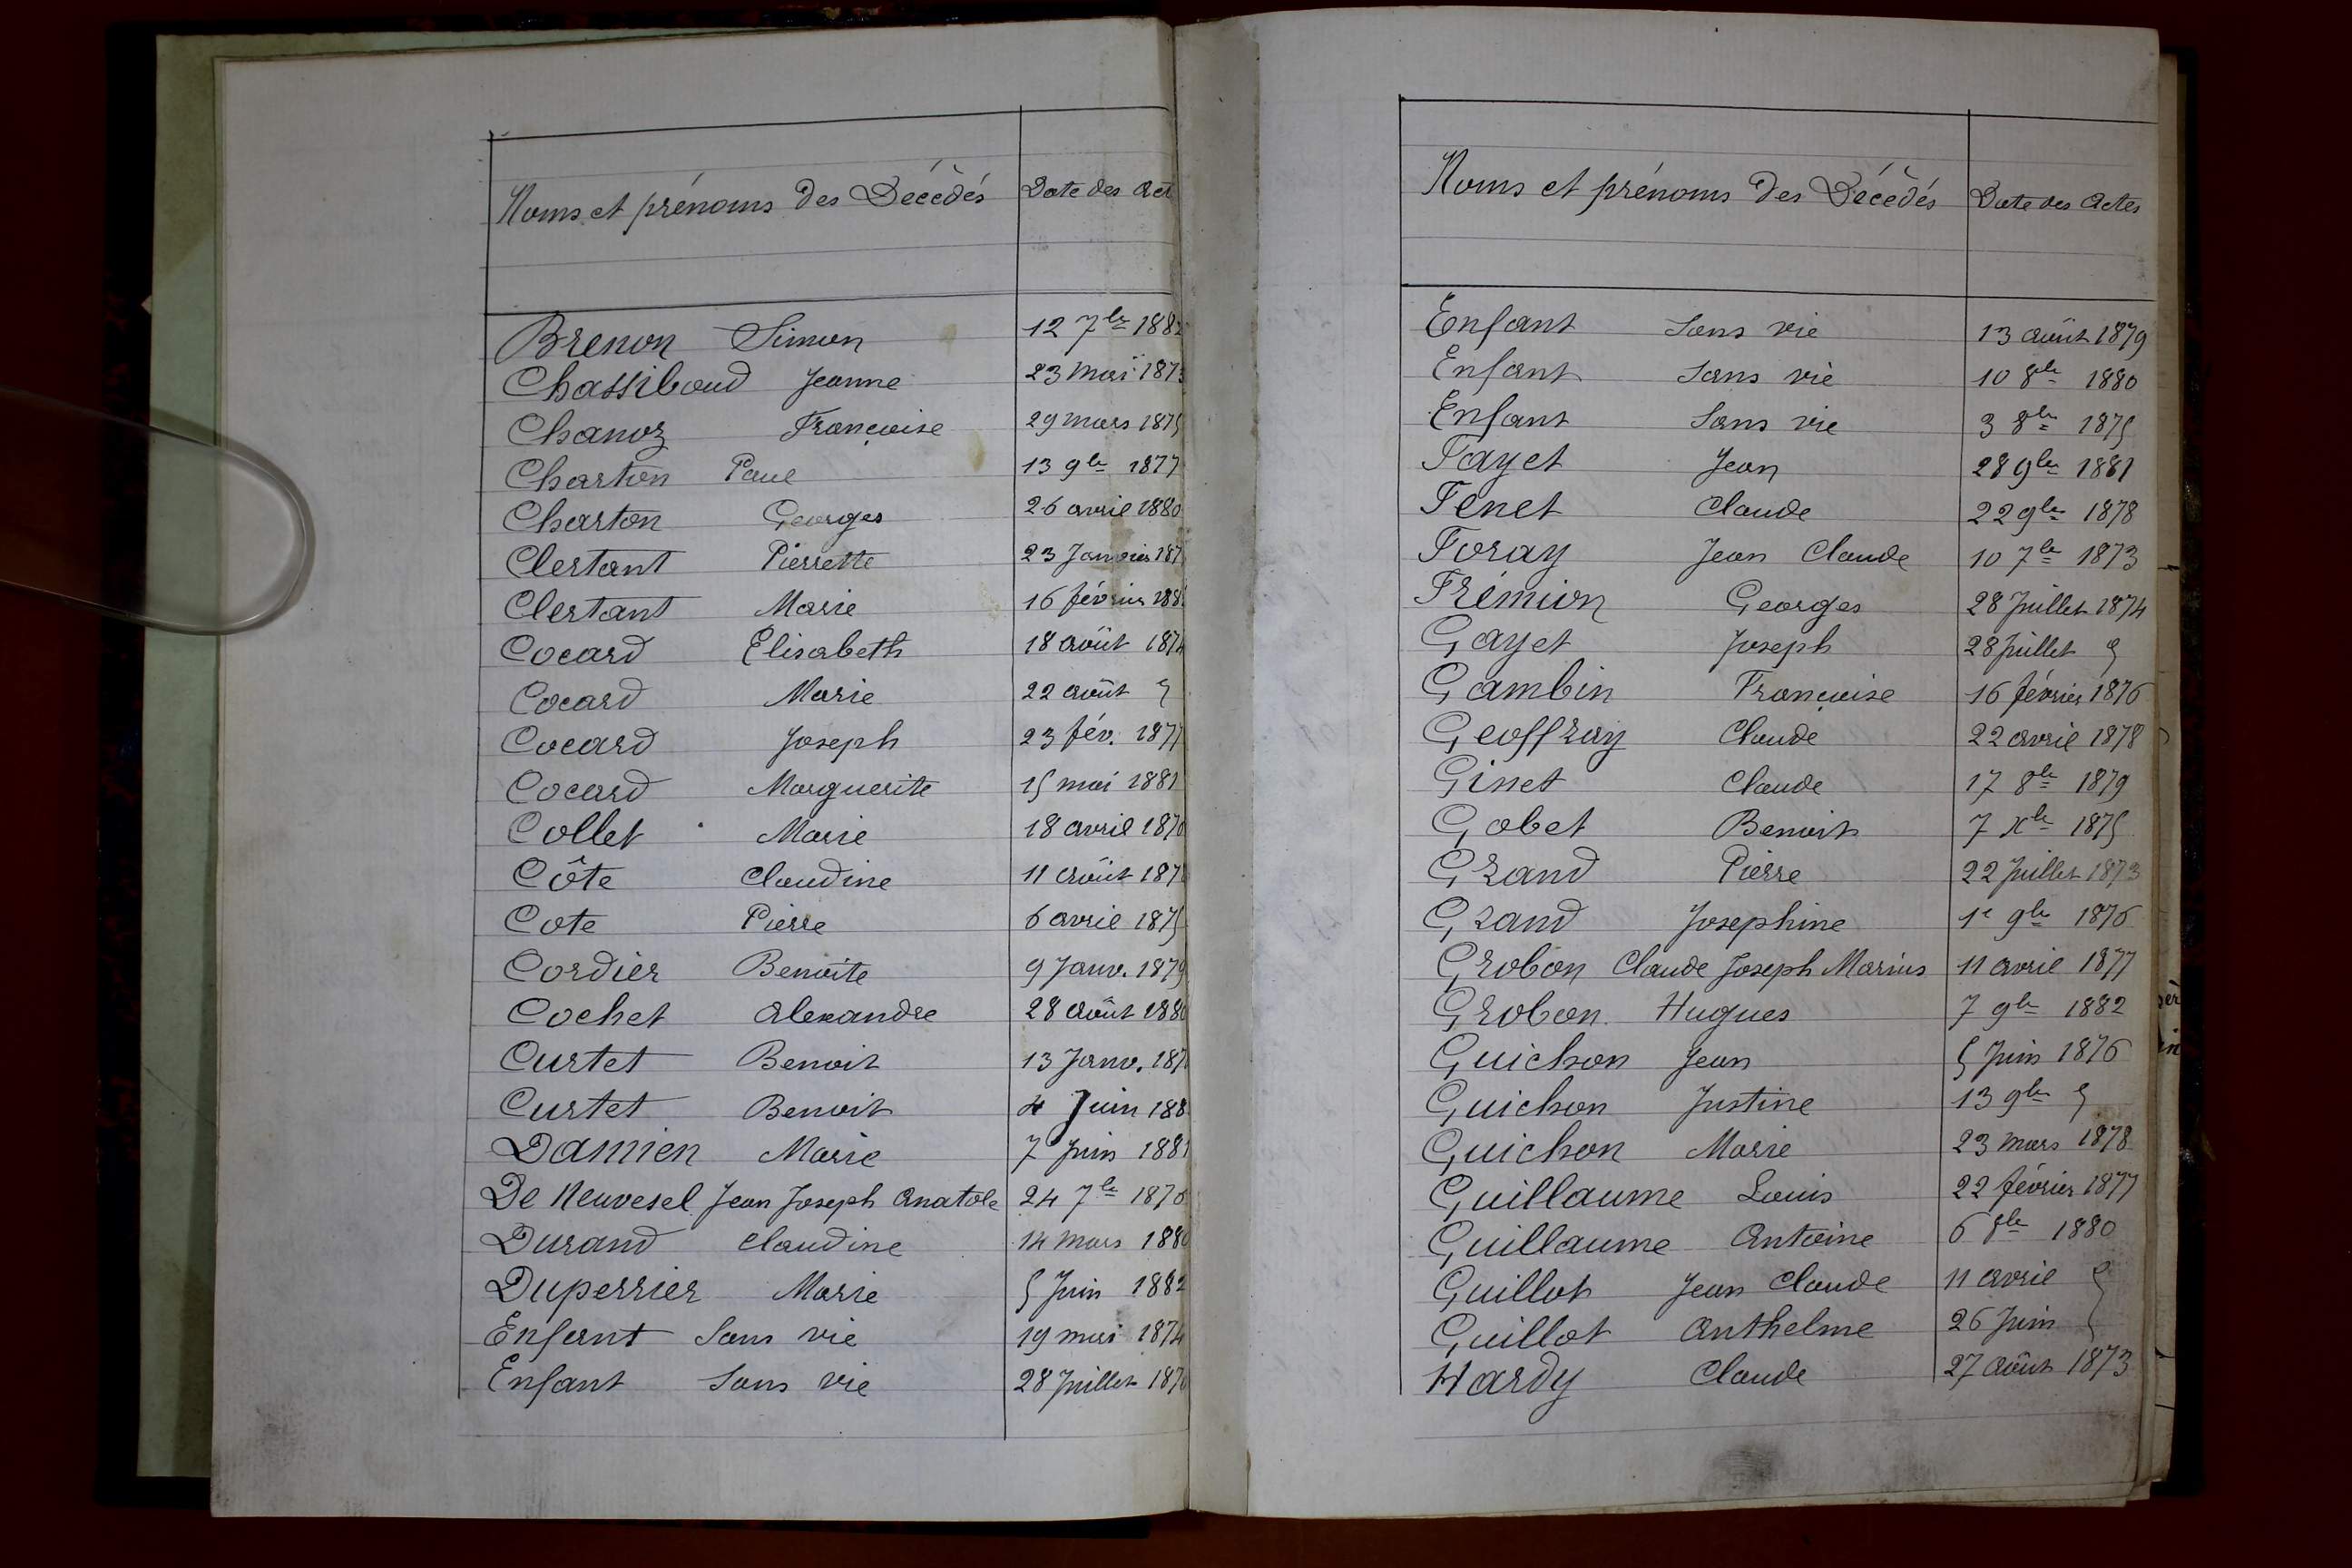 Noms et prénoms des Décédés Date des Act
Brenon Simon 12 7bre 1882
Chassiboud Jeanne 23 mai 1873
Chanoz Françoise 29 mars 1875
Charton Paul 13 9bre 1877
Charton Georges 26 avril 1880
Clertant Pierrette 23 Janvier 187
Clertant Marie 16 février 188
Cocard Elisabeth 18 août 1874
Cocard Marie 22 août "
Cocard Joseph 23 fév. 1877
Cocard Marguerite 15 mai 1881
Collet Marie 18 avril 187
Côte Claudine 11 août 187
Cote Pierre 6 avril 1875
Cordier Benoite 9 Janv. 1879
Cochet Alexandre 28 août 1880
Curtet Benoit 13 Janv. 187
Curtet Benoit 4 Juin 188
Damien Marie 7 Juin 1881
De Neuvesel Jean Joseph Anatole 24 7bre 1876
Durand Claudine 14 mars 1880
Duperrier Marie 5 Juin 1882
Enfant Sans vie 19 mai 1874
Enfant Sans vie 28 Juillet 187
Noms et prénoms des Décédés Date des Actes
Enfant Sans vie 13 août 1879
Enfant Sans vie 10 8bre 1880
Enfant Sans vie 3 8bre 1875
Fayet Jean 28 9bre 1881
Fenet Claude 22 9bre 1878
Foray Jean Claude 10 7bre 1873
Frémion Georges 28 Juillet 1874
Gayet Joseph 28 Juillet "
Gambin Françoise 16 février 1876
Geoffray Claude 22 avril 1878
Ginet Claude 17 8bre 1879
Gobet Benoit 7 Xbre 1875
Grand Pierre 22 Juillet 1873
Grand Josephine 1e 9bre 1876
Grobon Claude Joseph Marius 11 avril 1877
Grobon Hugues 7 9bre 1882
Guichon Jean 5 Juin 1876
Guichon Justine 13 9bre "
Guichon Marie 23 mars 1878
Guillaume Louis 22 février 1877
Guillaume Antoine 6 8bre 1880
Guillot Jean Claude 11 avril "
Guillot Anthelme 26 Juin "
Hardy Claude 27 août 1873